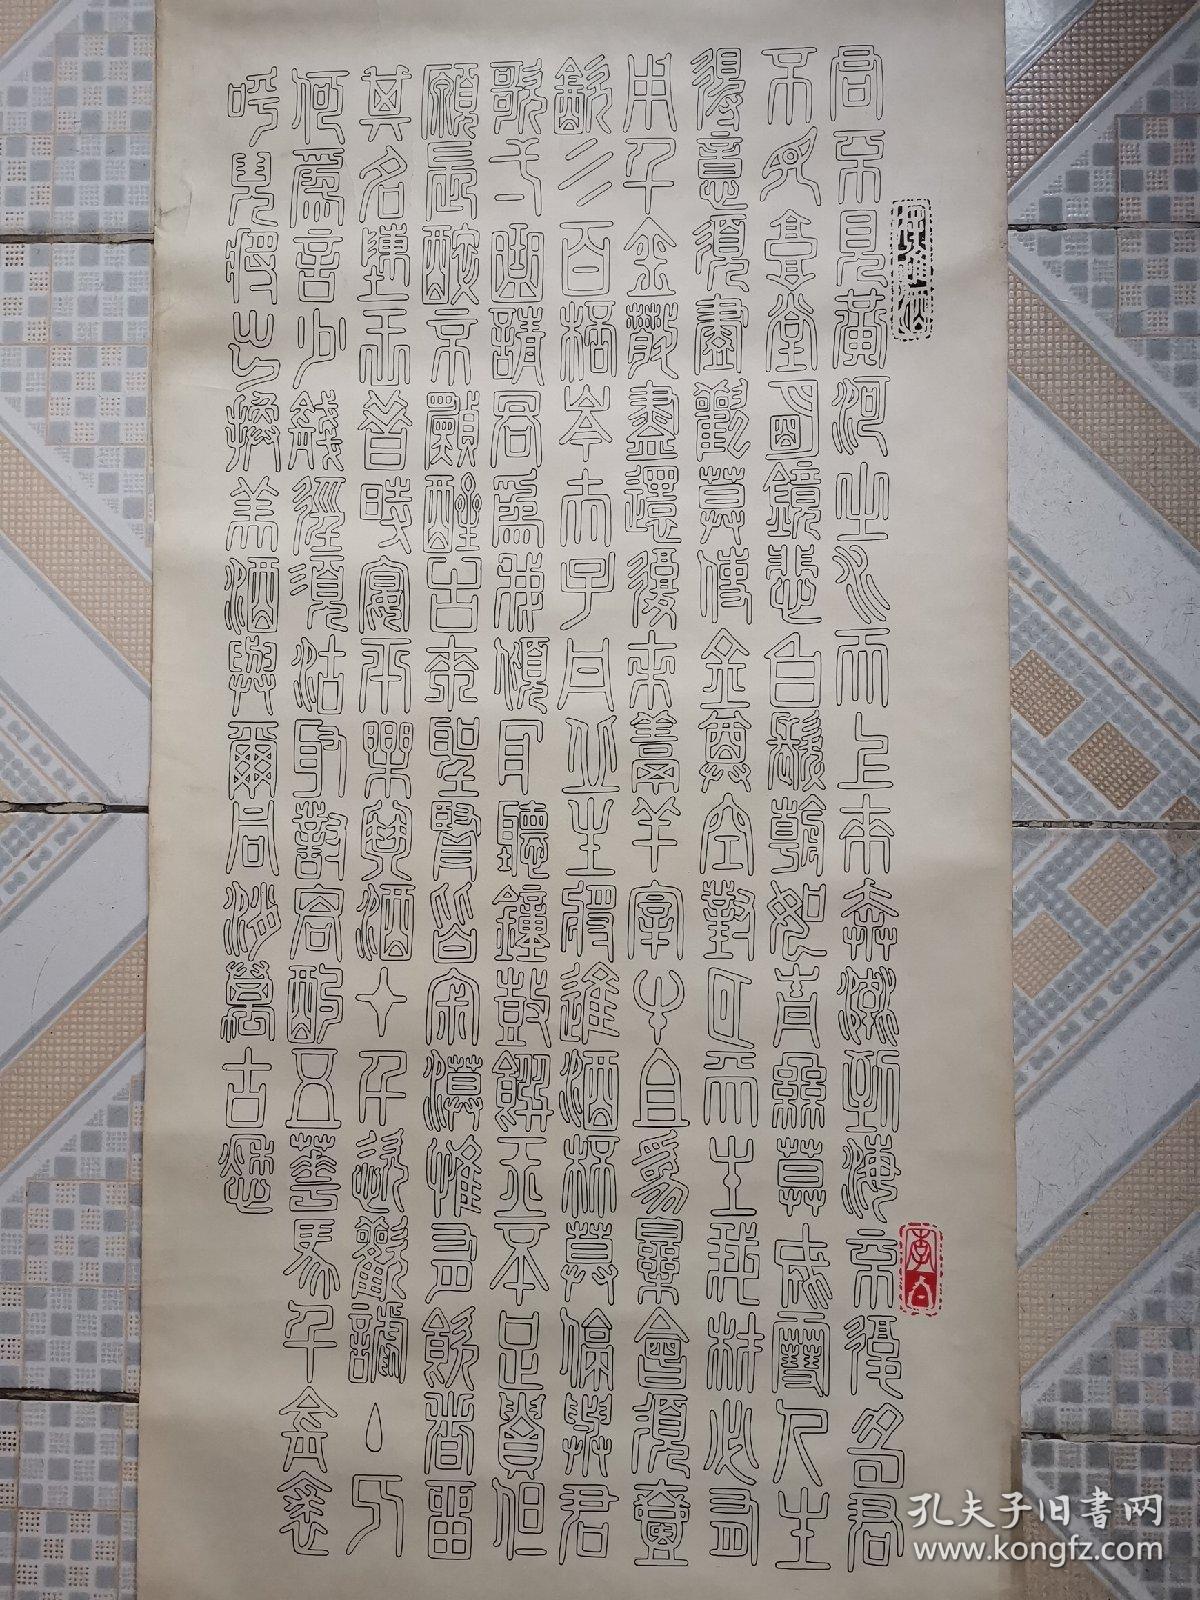 將進酒
君不見黃河之水天上來奔流到海不復回君
不見高堂明鏡悲白髮朝如青絲暮成雪人生
得意須盡歡莫使金尊空對月天生我材必有
用千金散盡還復來烹羊宰牛且為樂會須壹
飲三百杯岑夫子丹丘生將進酒杯莫停與君
歌弌曲請君為我傾耳聽鐘鼓饌玉不足貴但
願長醉不願醒古來聖賢皆寂寞惟有飲者留
其名陳王昔時宴平樂斗酒十千恣歡謔主人
何為言少錢徑須沽取對君酌五花馬千金裘
呼兒將出換美酒與爾同銷萬古愁
李白
孔夫子旧書网
www.kongfz.com